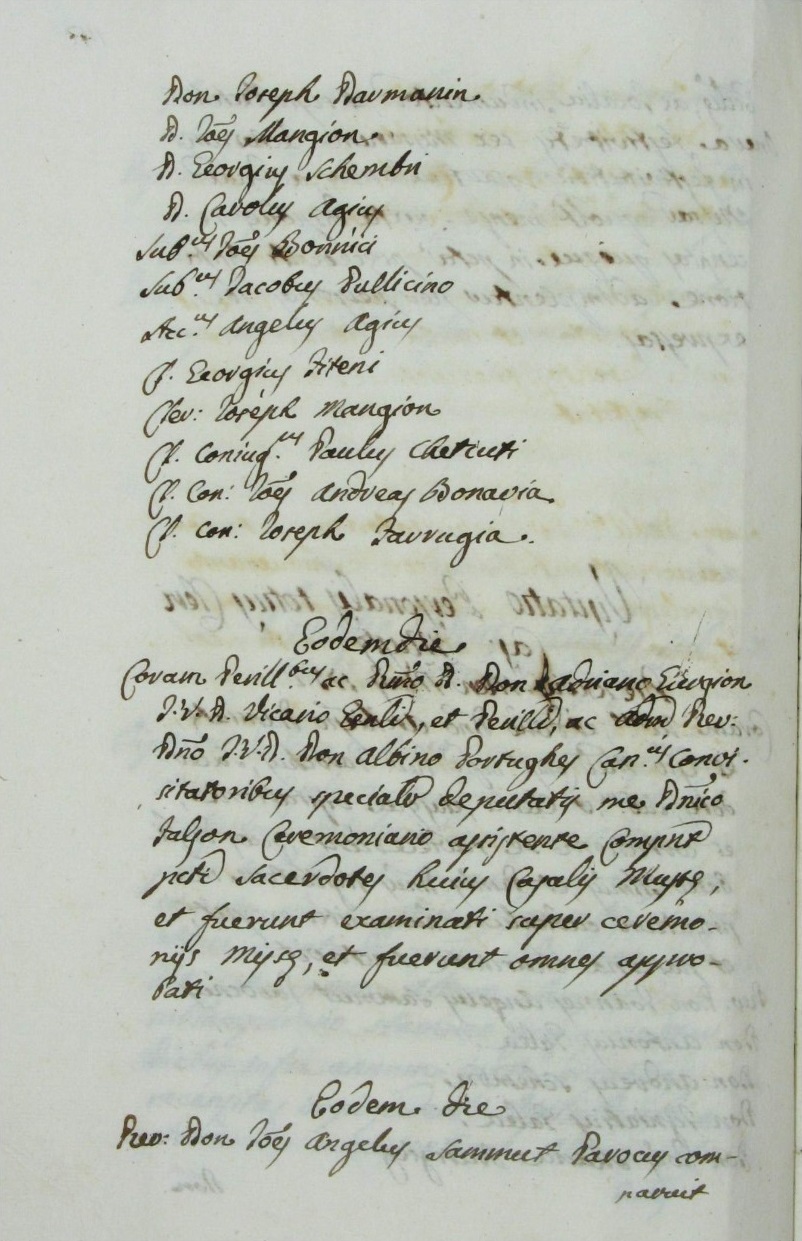 Don Joseph Darmanin
D. Joẽs Mangion.
D. Georgius Schembri
D. Carolus Agius
Sub.cus Joẽs Bonnici
Sub.cus Jacobus Pullicino
Acc.us Angelus Agius
Cl. Georgius Fiteni
Cler: Joseph Mangion
Cl. Coniug.us Paulus Chetcuti
Cl. Con: Joẽs Andreas Bonavia
Cl. Con: Joseph Farrugia.
Eodem die
Coram Perill.bus ac Rm̃o D. Don Adriano Gurgion
J.V.D. Vicario Gen̄li, et Perilli, ac adm Rev:
Dño J.V.D. Don Albino Portughes Can.cus Convi-
sitatoribus specialr deputatis me Dñico
Falson Ceremoniario assistente Comp̃nt
p̃cti Sacerdotes huius Casalis Muste,
et fuerunt examinati super ceremo-
nijs Misse, et fuerunt omnes appro-
bati
Eodem die
Rev: Don Joẽs Angelus Sammut Parocus com-
paruit